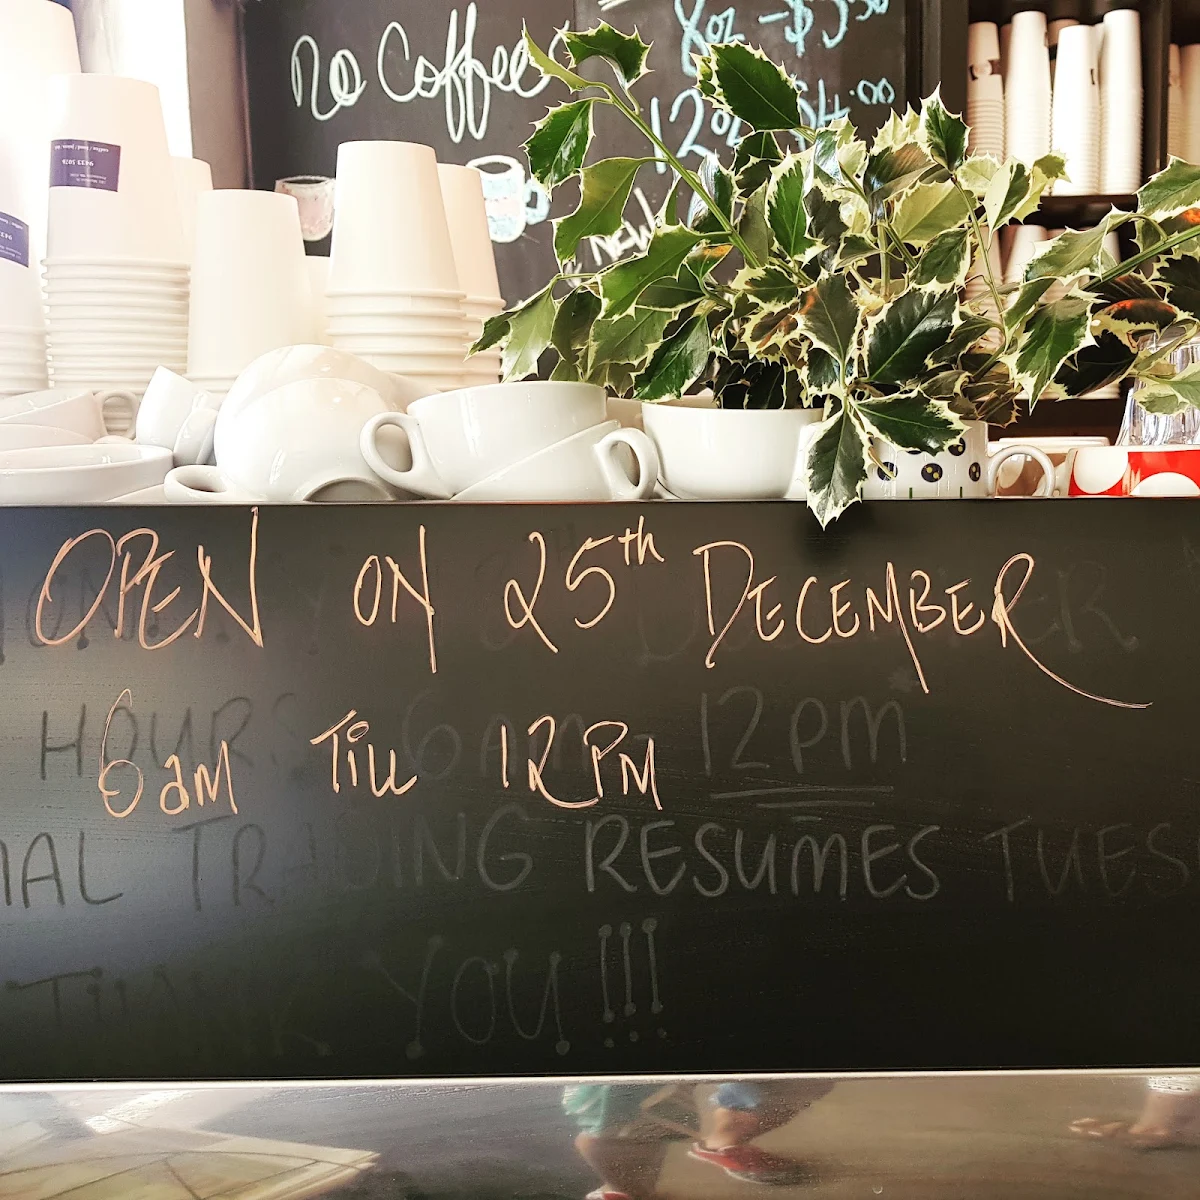 No Coffee
8oz - $3.50
12oz $4.00
NEW
9433 5076
OPEN ON 25th DECEMBER
6am Till 12PM
HOURS 6am 12pm
TRADING RESUMES TUES
THANK YOU!!!